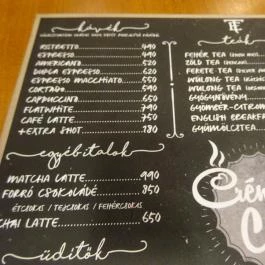 kávék
RISTRETTO 490
ESPRESSO 490
AMERICANO 520
DUPLA ESPRESSO 620
ESPRESSO MACCHIATO 550
CORTADO 590
CAPPUCCINO 650
FLATWHITE 790
CAFÉ LATTE 750
+EXTRA SHOT 180
egyéb italok
MATCHA LATTE 990
FORRÓ CSOKOLÁDÉ 850
ÉTCSOKIS / TEJCSOKIS / FEHÉRCSOKIS
CHAI LATTE 650
üdítők
teák
FEHÉR TEA
ZÖLD TEA
FEKETE TEA
WULONG TEA
WULONG TEA
GYÓGYNÖVÉNY
GYÖMBÉR-CITROM
ENGLISH BREAKFA
GYÜMÖLCSTEA